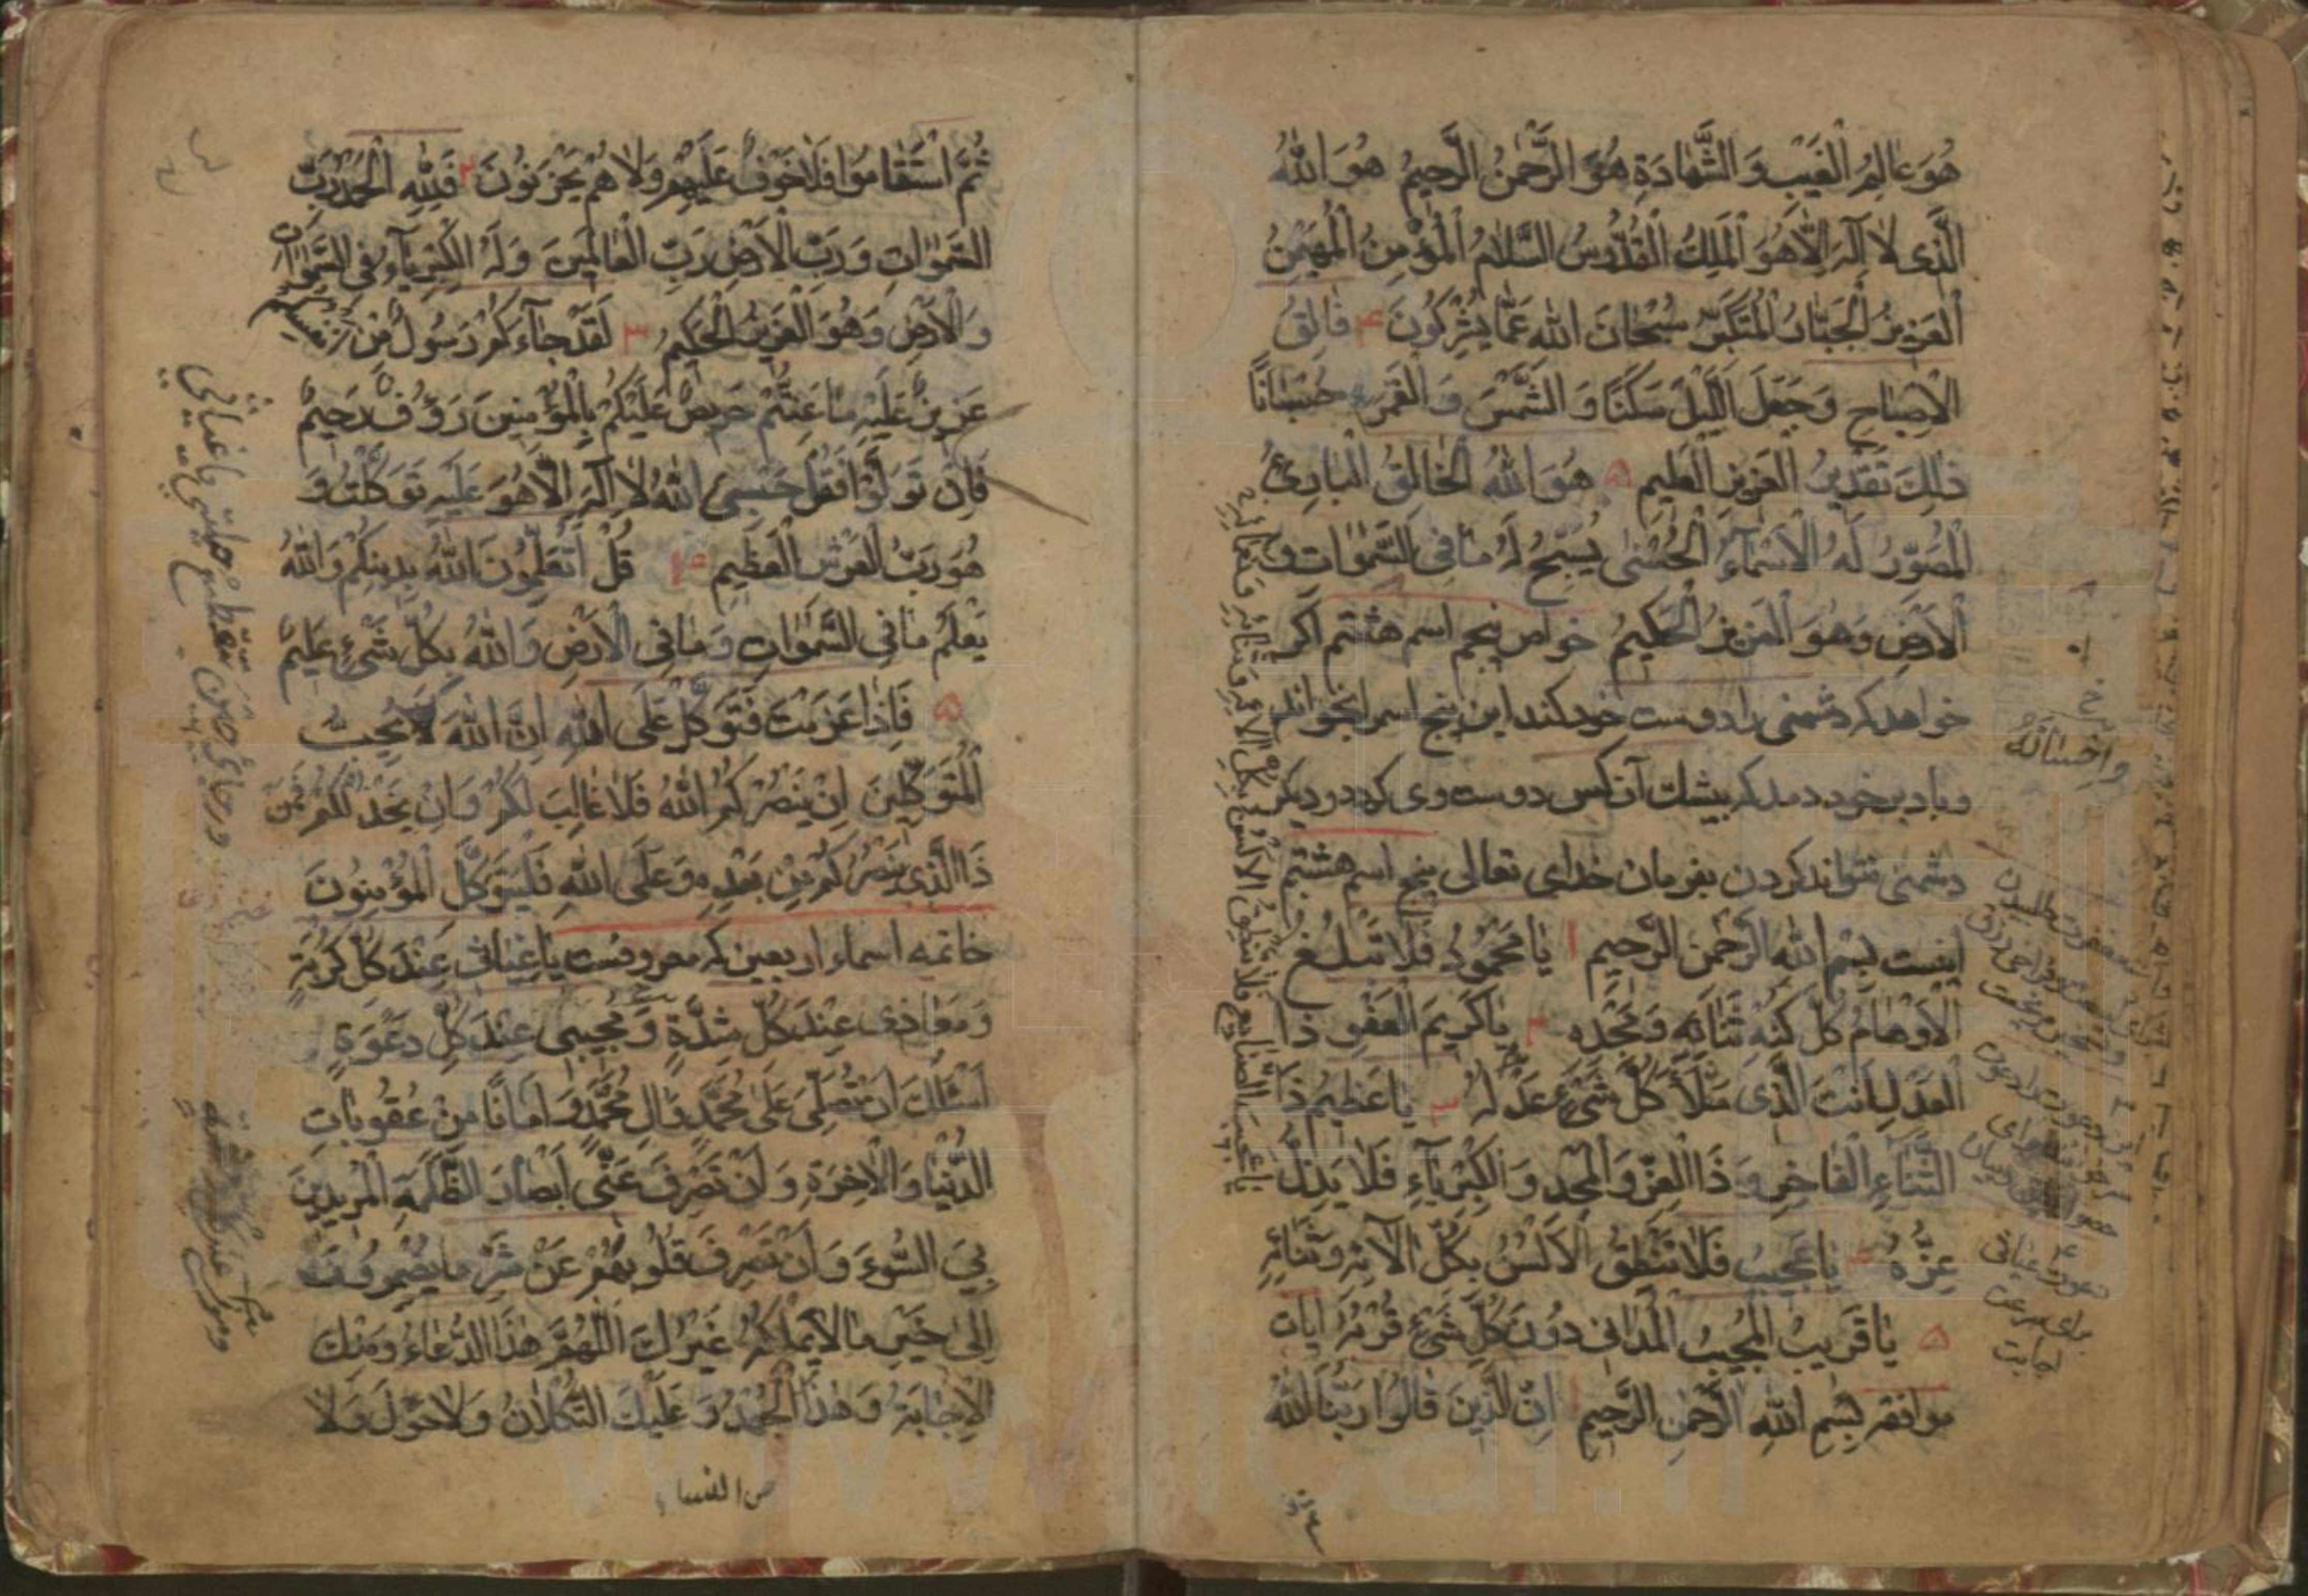 هُوَ عَالِمُ الْغَيْبِ وَ الشَّهَادَةِ هُوَ الرَّحْمٰنُ الرَّحِيمُ هُوَ اللّٰهُ
الَّذِى لَا اِلٰهَ اِلَّا هُوَ اَلْمَلِكُ الْقُدُّوسُ السَّلَامُ الْمُؤْمِنُ الْمُهَيْمِنُ
الْعَزِيزُ الْجَبَّارُ الْمُتَكَبِّرُ سُبْحَانَ اللّٰهِ عَمَّا يُشْرِكُونَ ۴ فَالِقُ
الْاِصْبَاحِ وَجَعَلَ اللَّيْلَ سَكَنًا وَ الشَّمْسَ وَ الْقَمَرَ حُسْبَانًا
ذٰلِكَ تَقْدِيرُ الْعَزِيزِ الْعَلِيمِ ۵ هُوَ اللّٰهُ الْخَالِقُ الْبَارِئُ
الْمُصَوِّرُ لَهُ الْاَسْمَآءُ الْحُسْنٰى يُسَبِّحُ لَهُ مَا فِى السَّمٰوَاتِ وَ
الْاَرْضِ وَهُوَ الْعَزِيزُ الْحَكِيمُ خواص پنجم اسم هشتم اکر
خواهد که دشمنی را دوست خود کند این پنج اسم را بخواند
و باد بر خود دمد که بیشک آن کس دوست وی کردد و دیکر
دشمنی نتواند کردن بفرمان خدای تعالی پنج اسم هشتم
اینست بِسْمِ اللّٰهِ الرَّحْمٰنِ الرَّحِيمِ ۱ يَا مَحْمُودُ فَلَا تَبْلُغُ
الْاَوْهَامُ كُلَّ كُنْهِ ثَنَائِهِ وَ مَجْدِهِ ۲ يَا كَرِيمَ الْعَفْوِ ذَا
الْعَدْلِ اَنْتَ الَّذِى مَلَأَ كُلَّ شَىْءٍ عَدْلُهُ ۳ يَا عَظِيمُ ذَا
الثَّنَآءِ الْفَاخِرِ وَ ذَا الْعِزِّ وَ الْمَجْدِ وَ الْكِبْرِيَآءِ فَلَا يَذِلُّ
عِزُّهُ ۴ يَا عَجِيبُ فَلَا تَنْطِقُ الْاَلْسُنُ بِكُلِّ اٰلَائِهِ وَ ثَنَائِهِ
۵ يَا قَرِيبُ الْمُجِيبُ الْمُدَانِى دُونَ كُلِّ شَىْءٍ قُرْبُهُ ايات
موافقه بِسْمِ اللّٰهِ الرَّحْمٰنِ الرَّحِيمِ ۱ اِنَّ الَّذِينَ قَالُوا رَبُّنَا اللّٰهُ
ثُمَّ اسْتَقَامُوا فَلَا خَوْفٌ عَلَيْهِمْ وَلَا هُمْ يَحْزَنُونَ ۲ فَلِلّٰهِ الْحَمْدُ رَبِّ
السَّمٰوَاتِ وَ رَبِّ الْاَرْضِ رَبِّ الْعَالَمِينَ وَ لَهُ الْكِبْرِيَآءُ فِى السَّمٰوَاتِ
وَ الْاَرْضِ وَ هُوَ الْعَزِيزُ الْحَكِيمُ ۳ لَقَدْ جَآءَكُمْ رَسُولٌ مِنْ اَنْفُسِكُمْ
عَزِيزٌ عَلَيْهِ مَا عَنِتُّمْ حَرِيصٌ عَلَيْكُمْ بِالْمُؤْمِنِينَ رَؤُفٌ رَحِيمٌ
فَاِنْ تَوَلَّوْا فَقُلْ حَسْبِىَ اللّٰهُ لَا اِلٰهَ اِلَّا هُوَ عَلَيْهِ تَوَكَّلْتُ وَ
هُوَ رَبُّ الْعَرْشِ الْعَظِيمِ ۴ قُلْ اَتُعَلِّمُونَ اللّٰهَ بِدِينِكُمْ وَ اللّٰهُ
يَعْلَمُ مَا فِى السَّمٰوَاتِ وَ مَا فِى الْاَرْضِ وَ اللّٰهُ بِكُلِّ شَىْءٍ عَلِيمٌ
۵ فَاِذَا عَزَمْتَ فَتَوَكَّلْ عَلَى اللّٰهِ اِنَّ اللّٰهَ يُحِبُّ
الْمُتَوَكِّلِينَ اِنْ يَنْصُرْكُمُ اللّٰهُ فَلَا غَالِبَ لَكُمْ وَ اِنْ يَخْذُلْكُمْ فَمَنْ
ذَا الَّذِى يَنْصُرُكُمْ مِنْ بَعْدِهِ وَ عَلَى اللّٰهِ فَلْيَتَوَكَّلِ الْمُؤْمِنُونَ
خاتمه اسماء اربعین که معروفست يَا غِيَاثِى عِنْدَ كُلِّ كُرْبَةٍ
وَ مَعَاذِى عِنْدَ كُلِّ شِدَّةٍ وَ مُجِيبِى عِنْدَ كُلِّ دَعْوَةٍ
اَسْئَلُكَ اَنْ تُصَلِّىَ عَلٰى مُحَمَّدٍ وَ اٰلِ مُحَمَّدٍ وَ اَمَانًا مِنْ عُقُوبَاتِ
الدُّنْيَا وَ الْاٰخِرَةِ وَ اَنْ تَصْرِفَ عَنِّى اَبْصَارَ الظَّلَمَةِ الْمُرِيدِينَ
بِىَ السُّوءَ وَ اَنْ تَصْرِفَ قُلُوبَهُمْ عَنْ شَرِّ مَا يُضْمِرُونَهُ
اِلٰى خَيْرِ مَا لَا يَمْلِكُهُ غَيْرُكَ اَللّٰهُمَّ هٰذَا الدُّعَاءُ وَ مِنْكَ
الْاِجَابَةُ وَ هٰذَا الْجُهْدُ وَ عَلَيْكَ التُّكْلَانُ وَ لَا حَوْلَ وَ لَا
يا عجيب الصنايع فلا تنطق الالسن بكل الائه و ثنائه